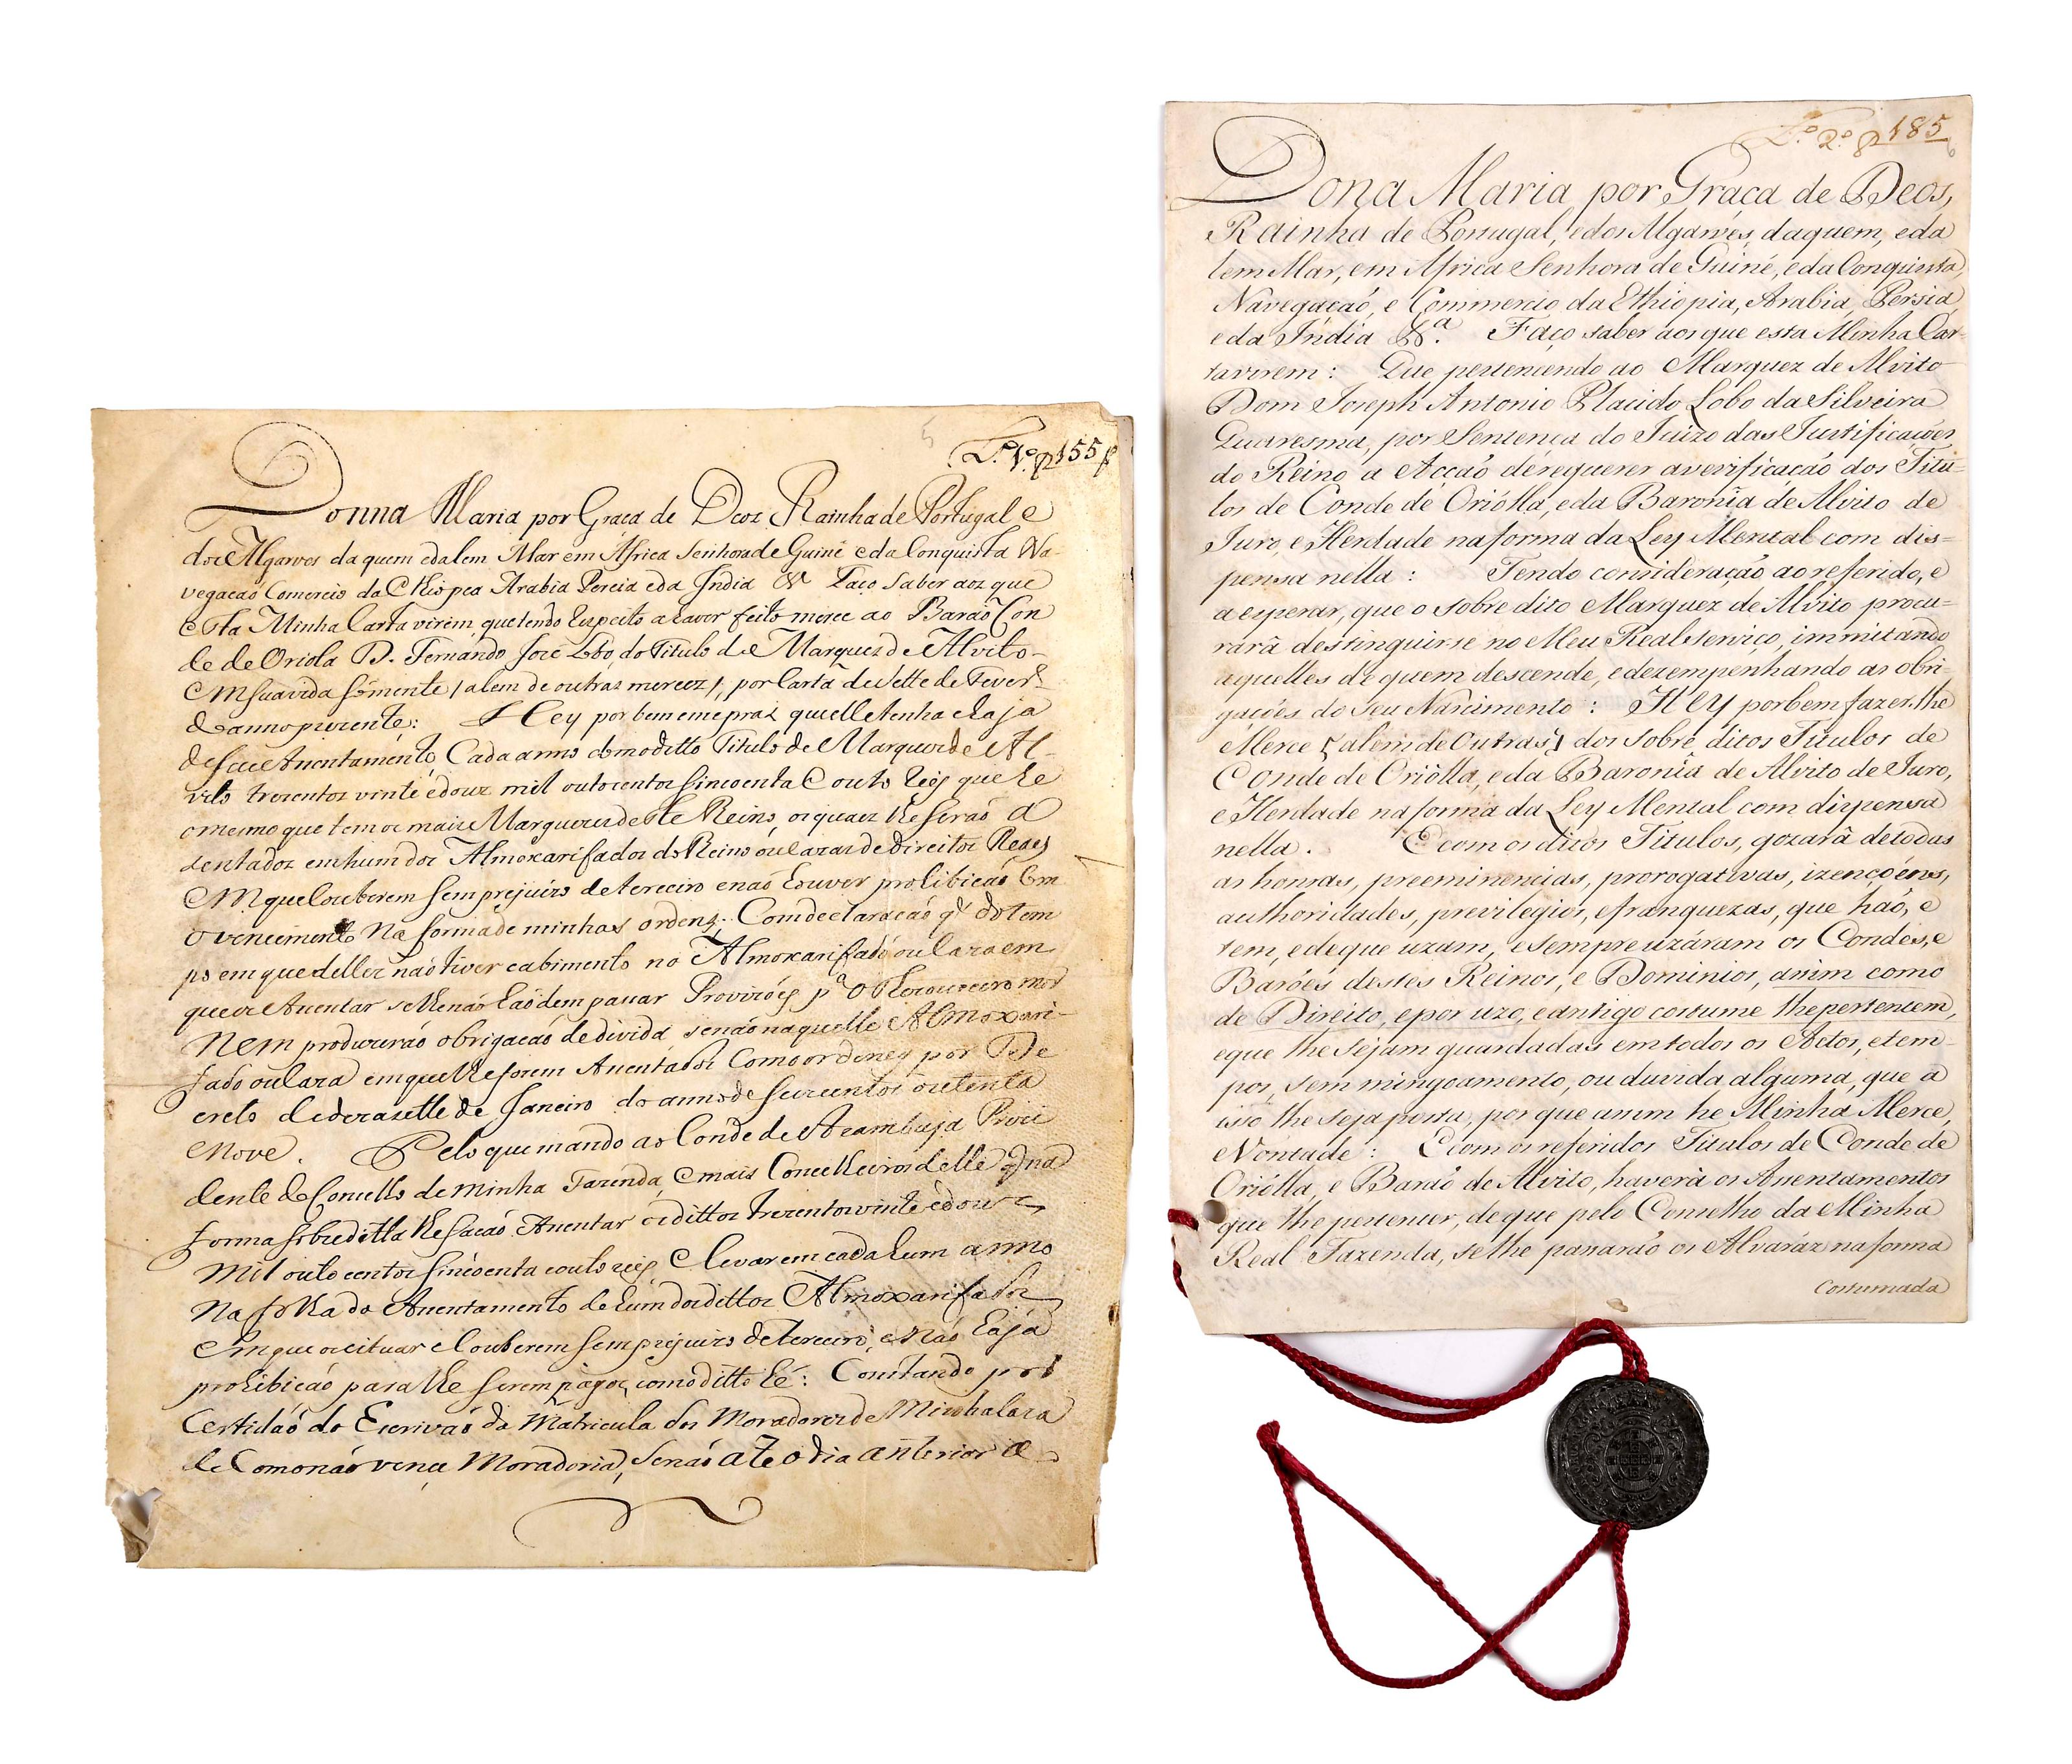 L.º 1.º f 155
Donna Maria por Graça de Deos Rainha de Portugal e
dos Algarves da quem e dalem Mar em Africa Senhora de Guiné e da Conquista Na-
vegacaõ Comercio da Ethiopea Arabia Percia e da India &ª Faço Saber aos que
esta Minha Carta virem, que tendo Respeito a haver feito merce ao Baraõ Con
de de Oriola D. Fernando José Lobo, do Titulo de Marquez de Alvito
em sua vida sómente / alem de outras mercez /, por Carta de sette de Feverº
do anno prezente: Hey por bem e me praz que elle tenha e haja
de seu Asentamento Cada anno com o ditto Titulo de Marquez de Al-
vito trezentos vinte e douz mil outocentos sincoenta e outo reis que he
o mesmo que tem os mais Marquezes deste Reino, os quaez lhe seraõ a
sentados em hum dos Almoxarifados do Reino ou cazas de direitos Reaes
em que couberem sem prejuizo de terceiro e naõ houver prohibicaõ Com
o vencimento Na forma de minhas ordenz; Com declaracaõ qᵉ do tem
po em que delles naõ tiver cabimento no Almoxarifado ou caza em
que se Asentar se lhe naõ haõ de m pasar Provizões pª o Thezoureiro mor
Nem produziráõ obrigacaõ de divida, senaõ naquelle Almoxari-
fado ou caza em que lhe forem Asentados Como ordeney por De
creto de dezasette de Janeiro do anno de seiscentos outenta
e Nove. Pelo que mando ao Conde de Azambuja Prezi
dente do Concelho de minha Fazenda, e mais Concelheiros delle qᵉ na
forma sobreditta lhe facaõ Asentar os dittos trezentos vinte e dous
mil outo centos sincoenta e outo reis e levar em cada hum anno
na folha do Asentamento de hum dos dittos Almoxarifados
em que os cituar e Couberem sem prejuizo de terceiro, e Naõ haja
prohibicaõ para lhe serem pagos, como ditto hé: Constando por
Certidaõ do Escrivaõ da Matricula dos Moradores de Minha Caza
de Como naõ vence Moradoria, Senaõ athe o dia anterior a
L.º 2.º f 185
Dona Maria por Graça de Deos,
Rainha de Portugal, e dos Algarvés, daquem, e da
lem Mar, em Africa Senhora de Guiné, e da Conquista,
Navegaçaõ, e Commercio da Ethiopia, Arabia, Persia,
e da India &ª. Faço saber aos que esta Minha Car-
ta virem: Que pertencendo ao Marquez de Alvito
Dom Joseph Antonio Placido Lobo da Silveira
Quaresma, por Sentença do Juizo das Justificaçoẽs
do Reino a Acçaõ de requerer a verificaçaõ dos Titu-
los de Conde de Oriólla, e da Baronîa de Alvito de
Juro, e Herdade na forma da Ley Mental com dis-
pensa nella: Tendo consideraçaõ ao referido, e
a esperar, que o sobredito Marquez de Alvito procu-
rará destinguirse no Meu Real serviço, immitando
aquelles de quem descende, e dezempenhando as obri-
gaçoẽs do seu Nascimento: Hey por bem fazer lhe
Merce (alem de outras) dos sobre ditos Titulos de
Conde de Oriólla, e da Baronîa de Alvito de Juro,
e Herdade na forma da Ley Mental com dispensa
nella. E com os ditos Titulos, gozará de todas
as honras, preeminencias, prorogativas, izençoẽns,
authoridades, previlegios, e franquezas, que haõ, e
tem, e de que uzam, e sempre uzáram os Condes, e
Barões destes Reinos, e Dominios, assim como
de Direito, e por uzo, e antigo costume lhe pertencem,
e que lhe sejam guardadas em todos os Actos, e tem-
pos, sem mingoamento, ou duvida alguma, que a
isso lhe seja posta, por que assim he Minha Merce,
e Vontade: E com os referidos Titulos de Conde de
Oriólla, e Baraõ de Alvito, haverá os Assentamentos
que lhe pertencer, de que pelo Conselho da Minha
Real Fazenda, se lhe passaráõ os Alvaráz na forma
Costumada